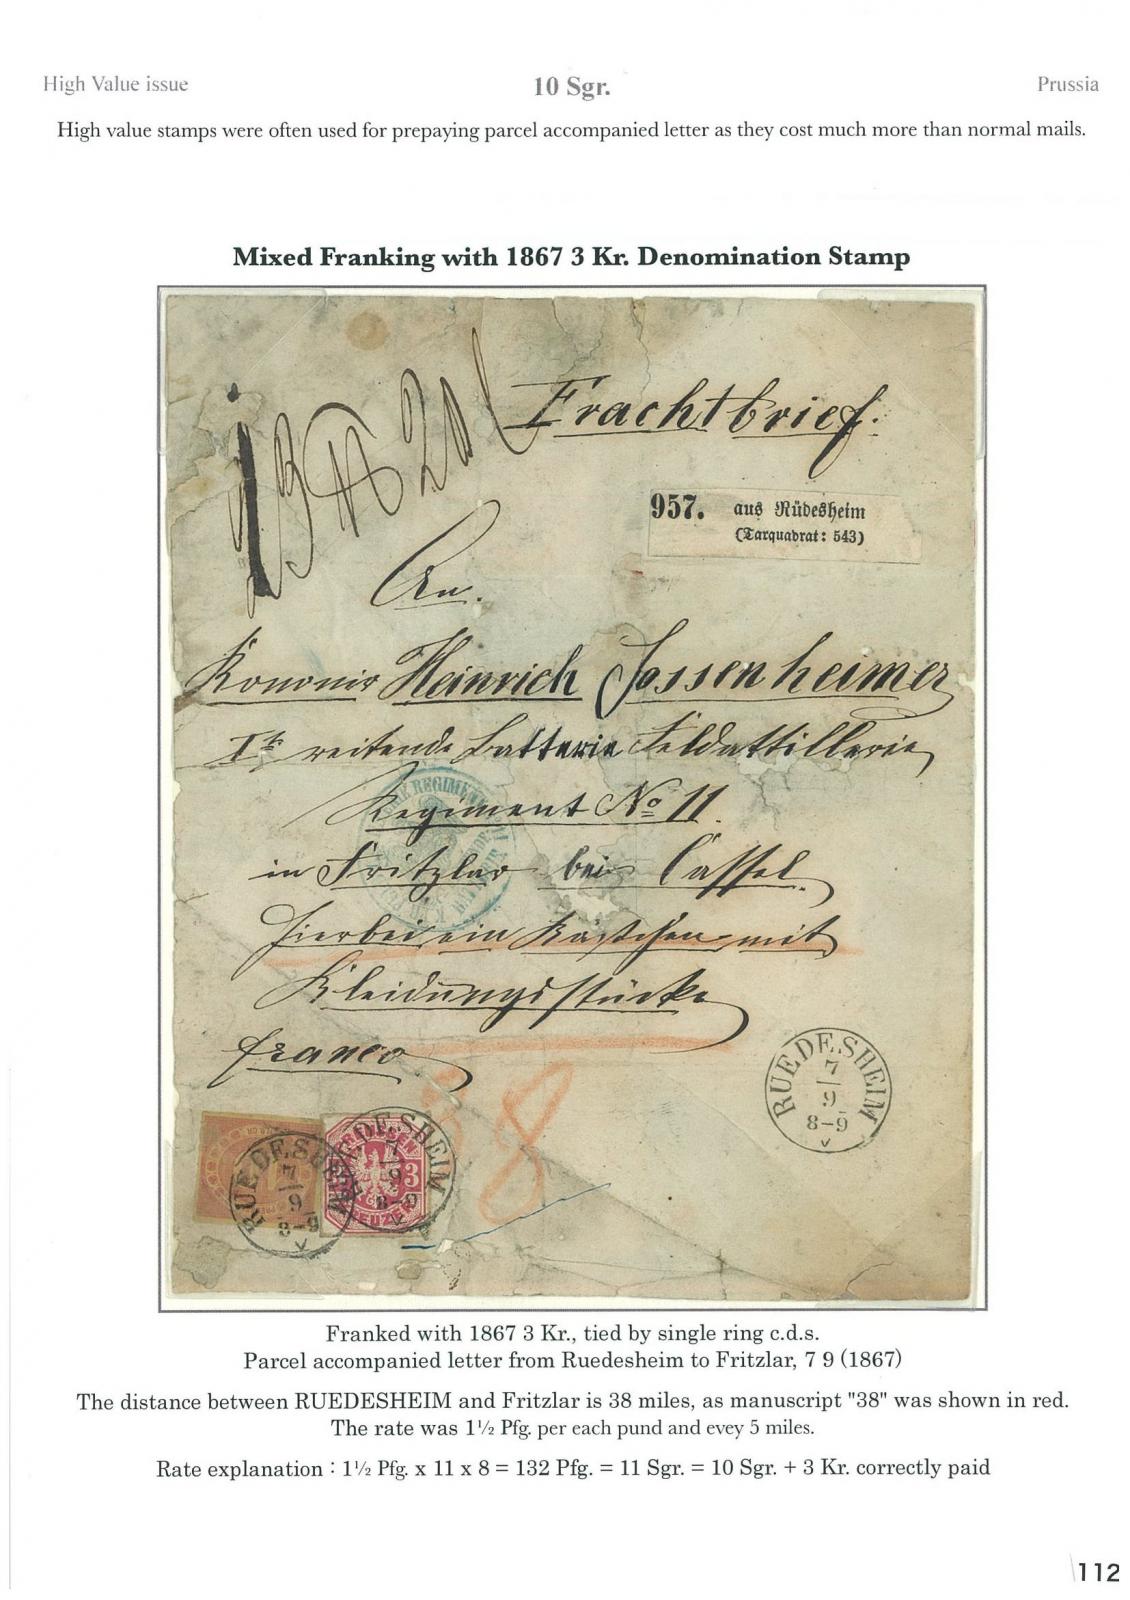 High Value issue
10 Sgr.
Prussia
High value stamps were often used for prepaying parcel accompanied letter as they cost much more than normal mails.
Mixed Franking with 1867 3 Kr. Denomination Stamp
Frachtbrief.
957. aus Rüdesheim
(Tarquadrat: 543)
An.
Kononir Heinrich Jossenheimer
1te reitende Batterie Feldattillerie
Regiment No 11.
in Fritzlar bei Cassel
hierbei ein Kästchen mit
Kleidungsstücke
franco
38
RUEDESHEIM
7
9
8-9
V
RUEDESHEIM
7
9
8-9
V
RUEDESHEIM
7
9
8-9
V
3
Franked with 1867 3 Kr., tied by single ring c.d.s.
Parcel accompanied letter from Ruedesheim to Fritzlar, 7 9 (1867)
The distance between RUEDESHEIM and Fritzlar is 38 miles, as manuscript "38" was shown in red.
The rate was 1½ Pfg. per each pund and evey 5 miles.
Rate explanation : 1½ Pfg. x 11 x 8 = 132 Pfg. = 11 Sgr. = 10 Sgr. + 3 Kr. correctly paid
112